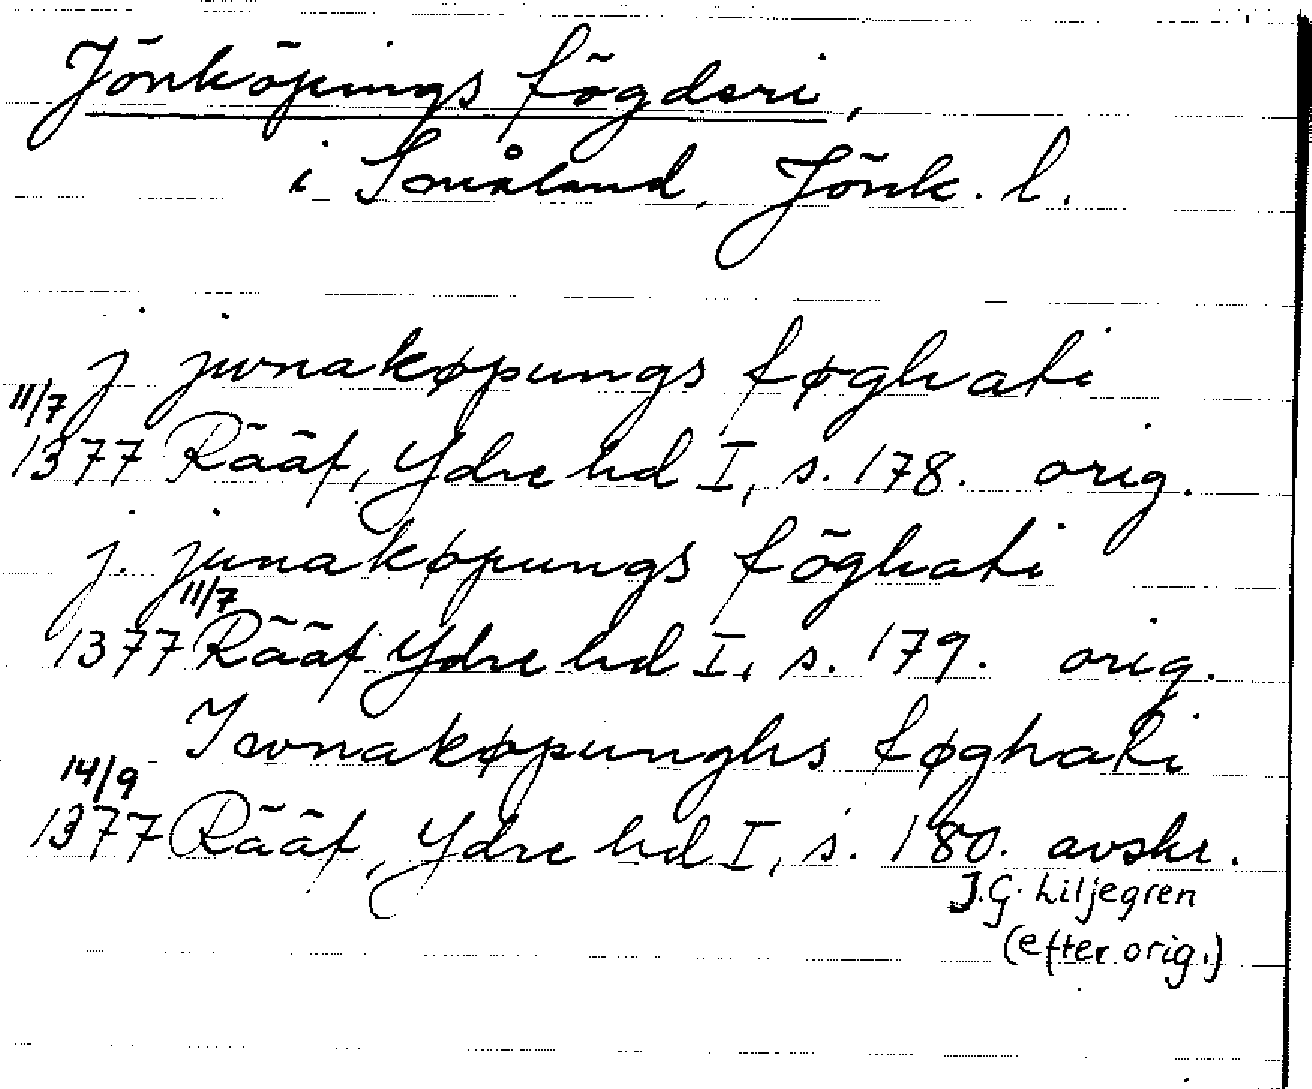 Jönköpings fögderi,
i Småland, Jönk. l.
j juvnakøpungs føghati
11/7
1377 Rääf, Ydre hd I, s. 178. orig.
j. junakøpungs föghati
11/7
1377 Rääf Ydre hd I, s. 179. orig.
Iwnakøpunghs føghati
14/9
1377 Rääf, Ydre hd I, s. 180. avskr.
J.G. Liljegren
(efter orig.)